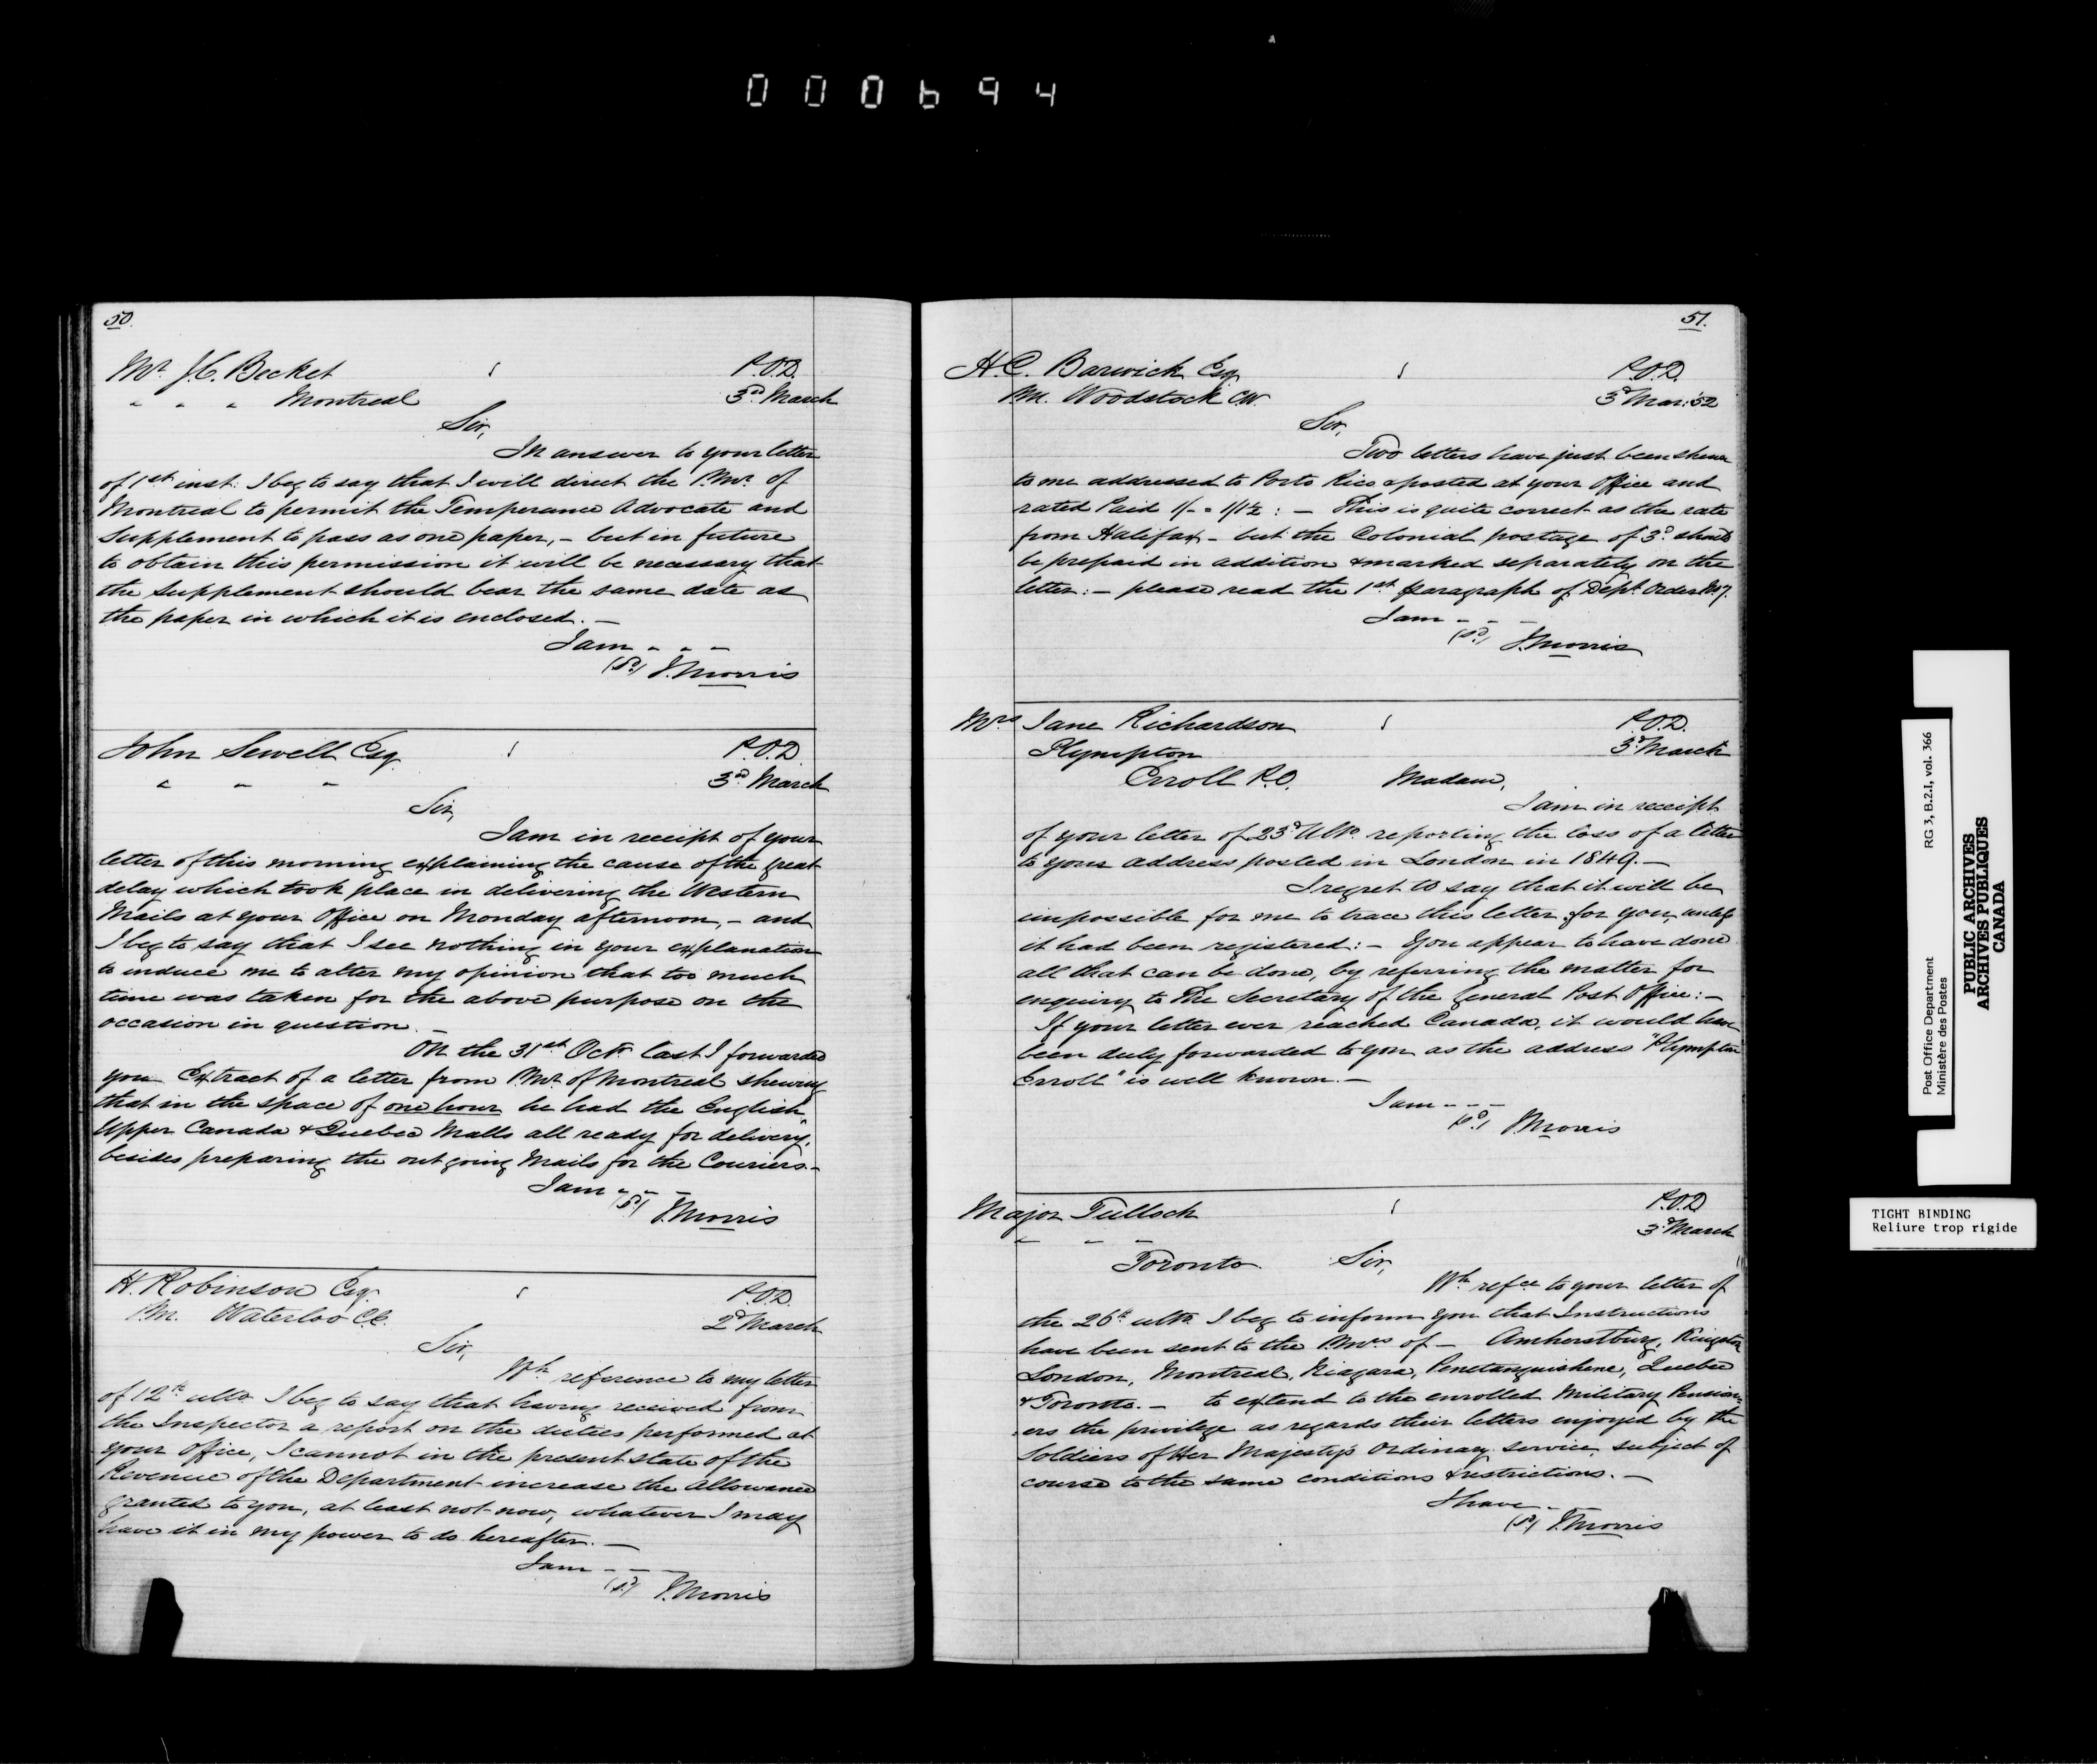 000694
50.
Mr. J.C. Becket P.O.D.
" " " Montreal 3rd March
Sir,
In answer to your letter
of 1st inst: I beg to say that I will direct the P.Mr. of
Montreal to permit the Temperance Advocate and
Supplement to pass as one paper, - but in future
to obtain this permission it will be necessary that
the Supplement should bear the same date as
the paper in which it is enclosed. -
I am - - -
(Sd) J. Morris
John Sewell Esq P.O.D.
" " " 3rd March
Sir,
I am in receipt of your
letter of this morning explaining the cause of the great
delay which took place in delivering the Western
Mails at your Office on Monday afternoon, - and
I beg to say that I see nothing in your explanation
to induce me to alter my opinion that too much
time was taken for the above purpose on the
occasion in question. -
On the 31st Octr. last I forwarded
you Extract of a letter from P.Mr. of Montreal shewing
that in the space of one hour he had the English,
Upper Canada & Quebec Mails all ready for delivery,
besides preparing the outgoing Mails for the Couriers. -
I am - - -
(Sd) J. Morris
H. Robinson Esq. P.O.D.
P.M. Waterloo C.E. 2d March
Sir,
Wh. reference to my letter
of 12th ulto. I beg to say that having received from
the Inspector a report on the duties performed at
your Office, I cannot in the present state of the
Revenue of the Department increase the allowance
granted to you, at least not now, whatever I may
have it in my power to do hereafter. -
I am - - -
(Sd) J. Morris
51.
H.C. Barwick Esq P.O.D.
P.M. Woodstock C.W. 3d Mar: 52
Sir,
Two letters have just been shewn
to me addressed to Porto Rico & posted at your Office and
rated Paid 1/- = 1/1½ : - This is quite correct as the rate
from Halifax - but the Colonial postage of 3d should
be prepaid in addition & marked separately on the
letter: - please read the 1st paragraph of Dept. Order No 7.
I am - - -
(Sd) J. Morris
Mrs Jane Richardson P.O.D.
Plympton 3d March
Erroll P.O. Madam,
I am in receipt
of your letter of 23d Ulto. reporting the loss of a letter
to your address posted in London in 1849. -
I regret to say that it will be
impossible for me to trace this letter for you, unless
it had been registered: - You appear to have done
all that can be done, by referring the matter for
enquiry to The Secretary of the General Post Office: -
If your letter ever reached Canada, it would have
been duly forwarded to you as the address "Plympton
Erroll" is well known. -
I am - - -
(Sd) J. Morris
Major Tulloch P.O.D.
" " " 3d March
Toronto Sir,
Wh. refce to your letter of
the 26th ulto. I beg to inform you that Instructions
have been sent to the P.Mrs of - Amherstburg, Kingston
London, Montreal, Niagara, Penetanguishene, Quebec
& Toronto. - to extend to the enrolled Military Pension-
-ers the privilege as regards their letters enjoyed by the
Soldiers of Her Majesty's Ordinary service, subject of
course to the same conditions & restrictions. -
I have - -
(Sd) J. Morris
Post Office Department RG 3, B.2.I, vol. 366
Ministère des Postes
PUBLIC ARCHIVES
ARCHIVES PUBLIQUES
CANADA
TIGHT BINDING
Reliure trop rigide